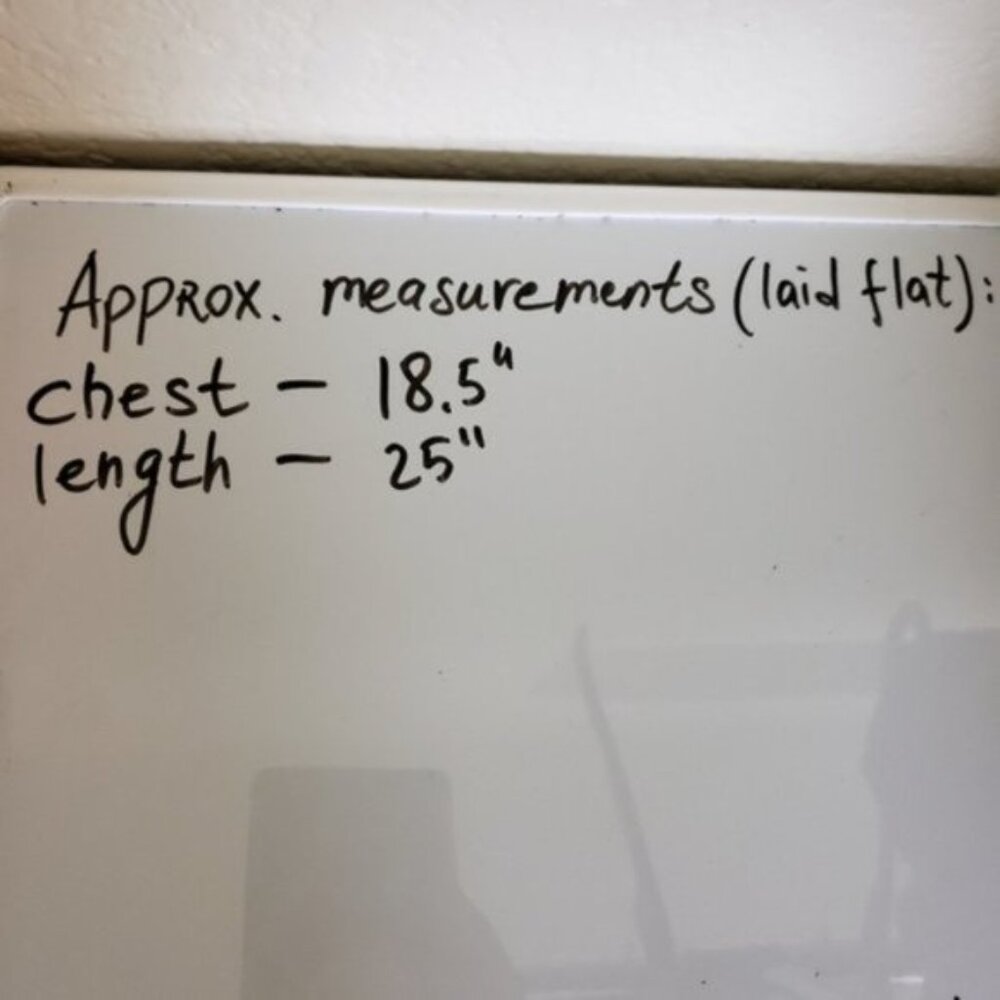 Approx. measurements (laid flat):
chest – 18.5"
length – 25"